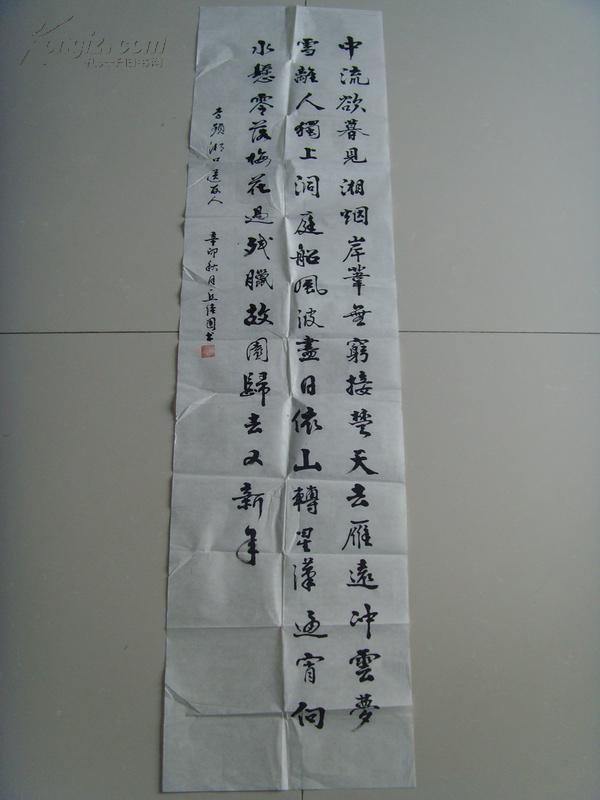 中流欲暮見湘烟岸葦無窮接楚天去雁遠冲雲夢
雪離人獨上洞庭船風波盡日依山轉星漢通宵向
水懸零落梅花過殘臘故園歸去又新年
李頻湘口送友人 辛卯秋月 書
Kongfz.com
孔夫子旧书网